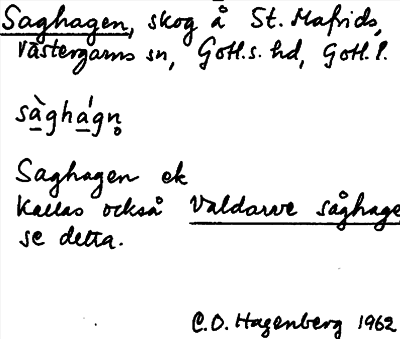 Saghagen, skog å St. Mafrids,
Västergarns sn, Gotl.s. hd, Gotl. l.
sa̠̋ghá̠gn̥
Saghagen ek
Kallas också Valdarve såghage
se detta.
C.O. Hagenberg 1962